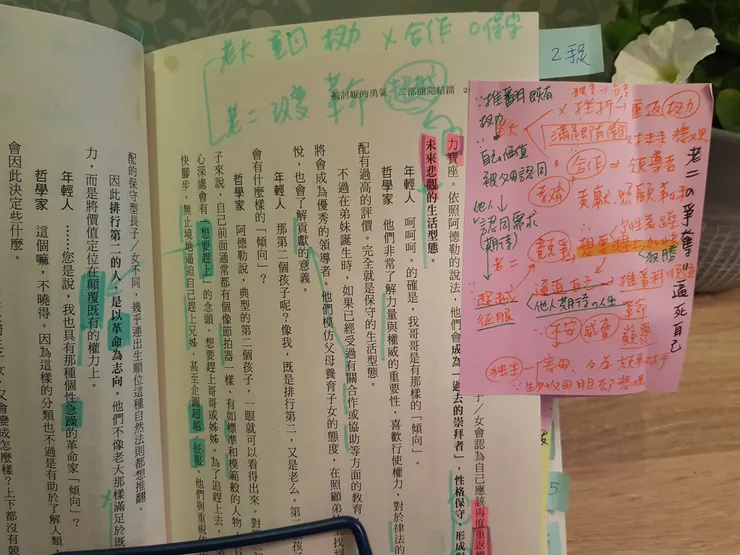 老大 重回 权力 x 合作 O 保守
老二 改變 革命 超越
被討厭的勇氣 二部曲完結篇
2 段
子／女會認為自己應該再度重返
力寶座。依照阿德勒的說法，他們會成為「過去的崇拜者」，性格保守，形成
未來悲觀的生活型態。
年輕人 呵呵呵。的確是，我哥哥是有那樣的「傾向」。
哲學家 他們非常了解力量與權威的重要性，喜歡行使權力，對於律法的
配有過高的評價。完全就是保守的生活型態。
不過在弟妹誕生時，如果已經受過有關合作或協助等方面的教育
將會成為優秀的領導者。他們模仿父母養育子女的態度，在照顧弟 找到
悅，也會了解貢獻的意義。
年輕人 那第二個孩子呢？像我，既是排行第二，又是老么。第二 孩子
會有什麼樣的「傾向」？
哲學家 阿德勒說，典型的第二個孩子，一眼就可以看得出來。對
子來說，自己前面通常都有個像節拍器一樣，有如標準和模範般的人物
心深處會有「想要趕上」的念頭，想要趕上哥哥或姊姊。為了追趕上去，
快腳步，無止境地逼迫自己趕上兄姊，甚至企圖超越、征服。他們與重視
配的保守型長子／女不同，幾乎連出生順位這種自然法則都想推翻。
因此排行第二的人，是以革命為志向。他們不像老大那樣滿足於既
力，而是將價值定位在顛覆既有的權力上。
年輕人 ……您是說，我也具有那種個性急躁的革命家「傾向」？
哲學家 這個嘛，不曉得。因為這樣的分類也不過是有助於了解人類，
會因此決定些什麼。
又會變成怎麼樣？上下都沒有競
老二的爭奪 逼死自己
老大
x 挫折→重返权力
合作→領導者
教育
貢獻、照顧
推翻既有
权力
自己價值
被父母認同
他人
認同需求
期待
老二
競爭
想要趕上
放勝
超越
征服
逼迫自己
他人期待的人生
革命
不安 威脅
獨生
5